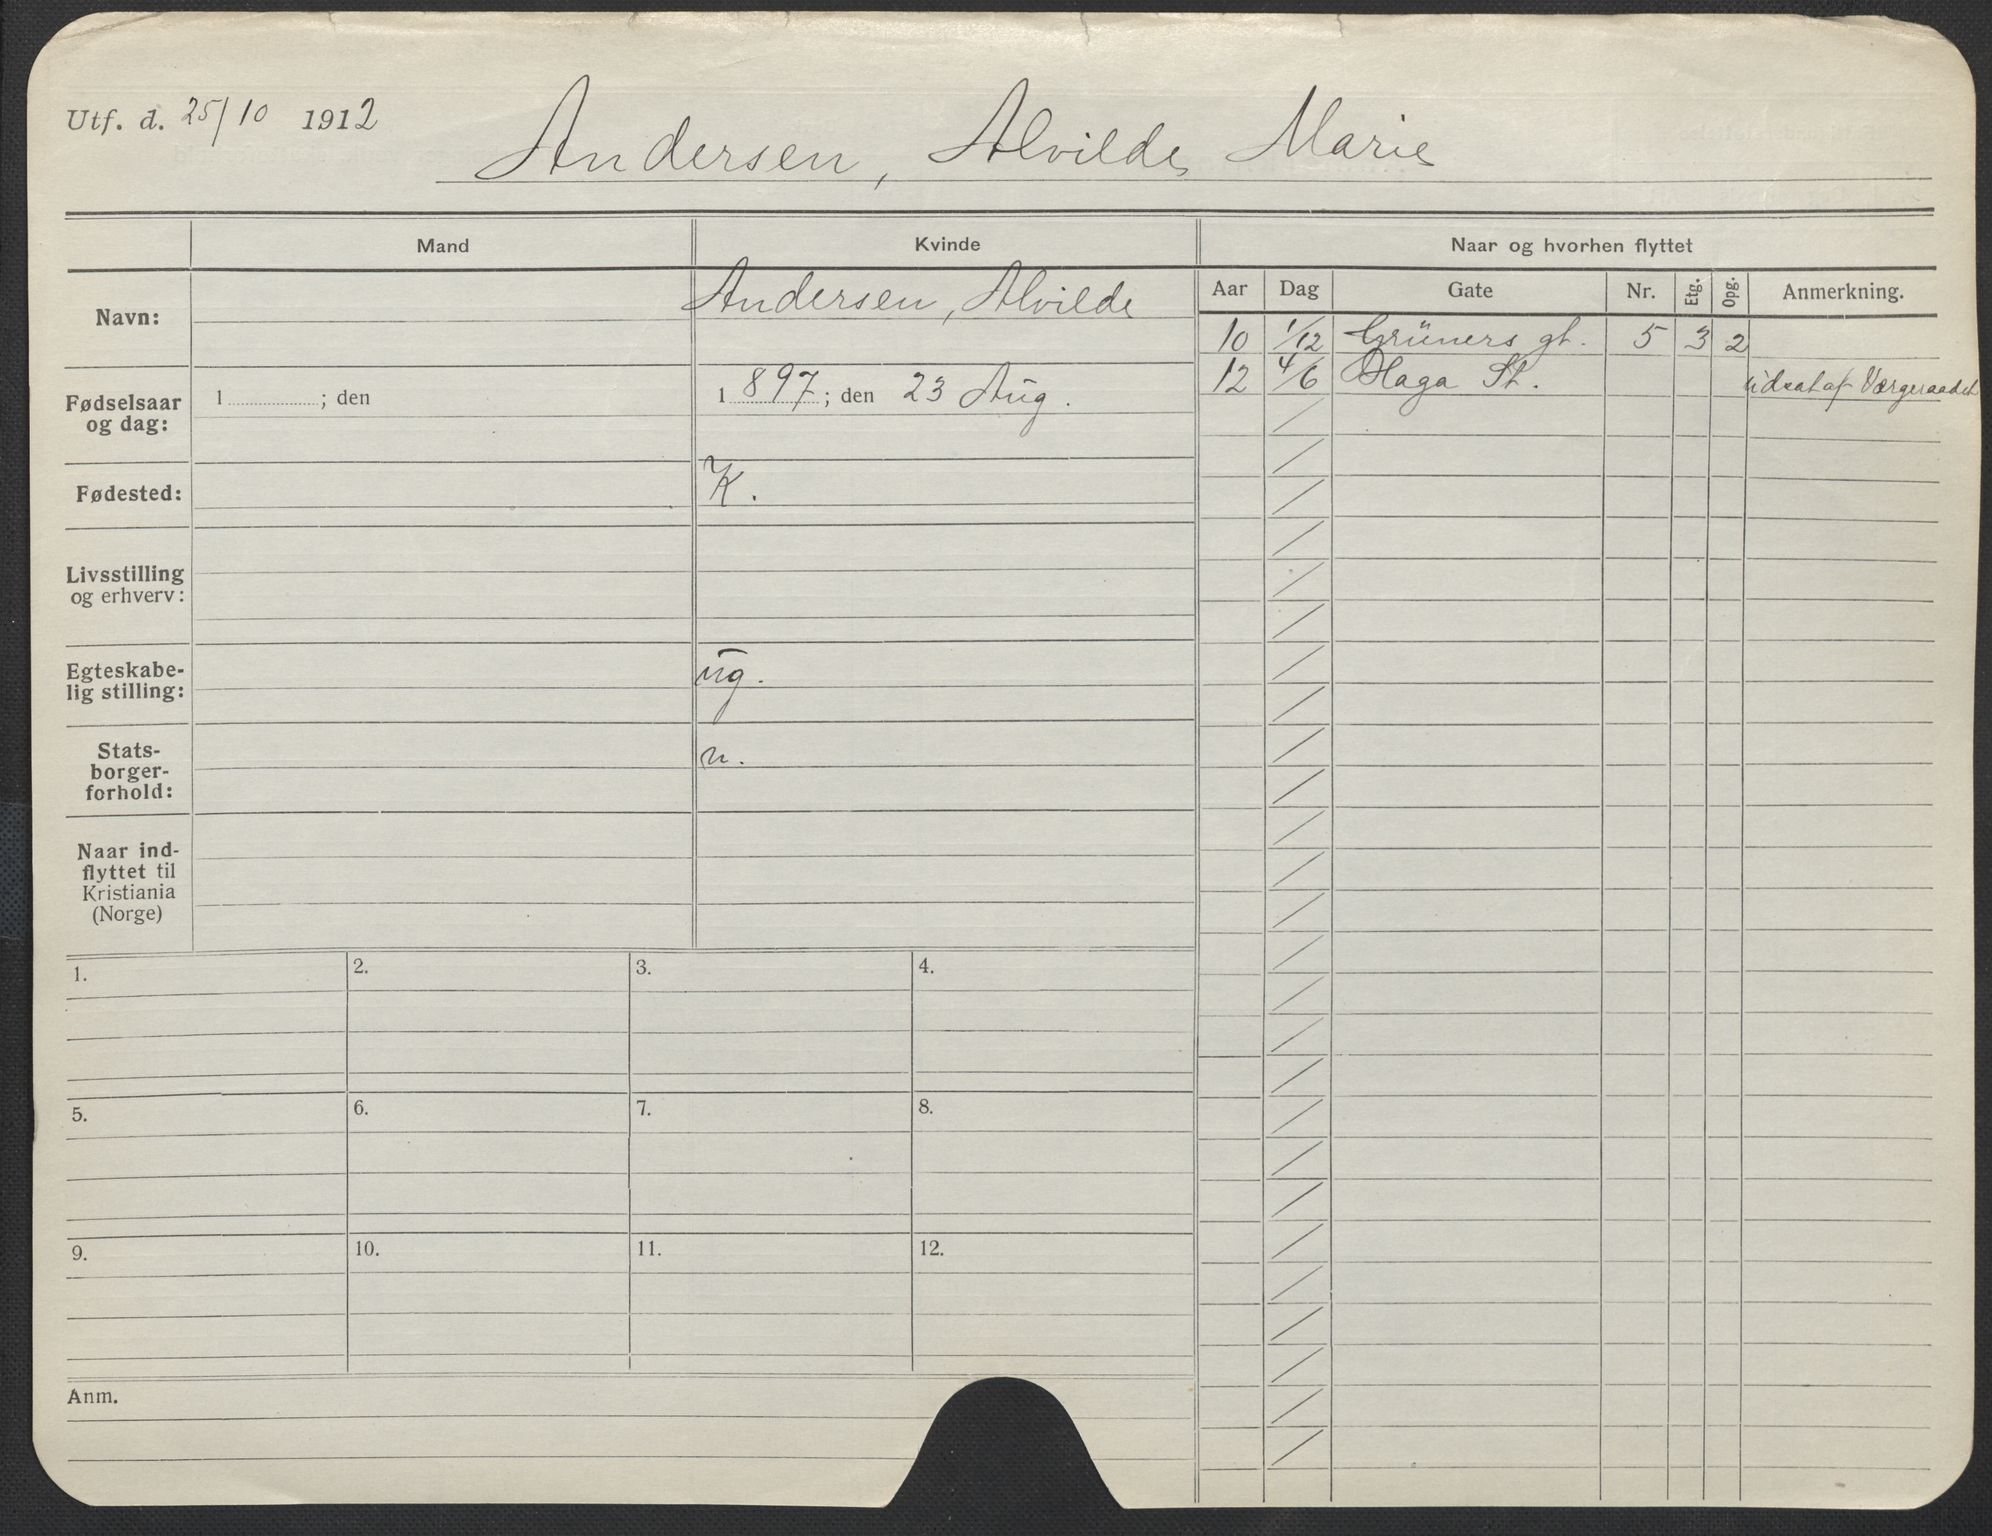 Utf. d. 25/10 1912
Andersen, Alvilde Marie
Mand
Kvinde
Naar og hvorhen flyttet
Navn:
Andersen, Alvilde
Aar Dag Gate Nr. Etg. Opg. Anmerkning.
10 1/12 Grüners gt. 5 3 2
12 4/6 Haga St. udsat af Værgeraadet
Fødselsaar
og dag:
1 ; den
1 897 ; den 23 Aug.
Fødested:
K.
Livsstilling
og erhverv:
Egteskabe-
lig stilling:
ug.
Stats-
borger-
forhold:
n.
Naar ind-
flyttet til
Kristiania
(Norge)
1. 2. 3. 4.
5. 6. 7. 8.
9. 10. 11. 12.
Anm.